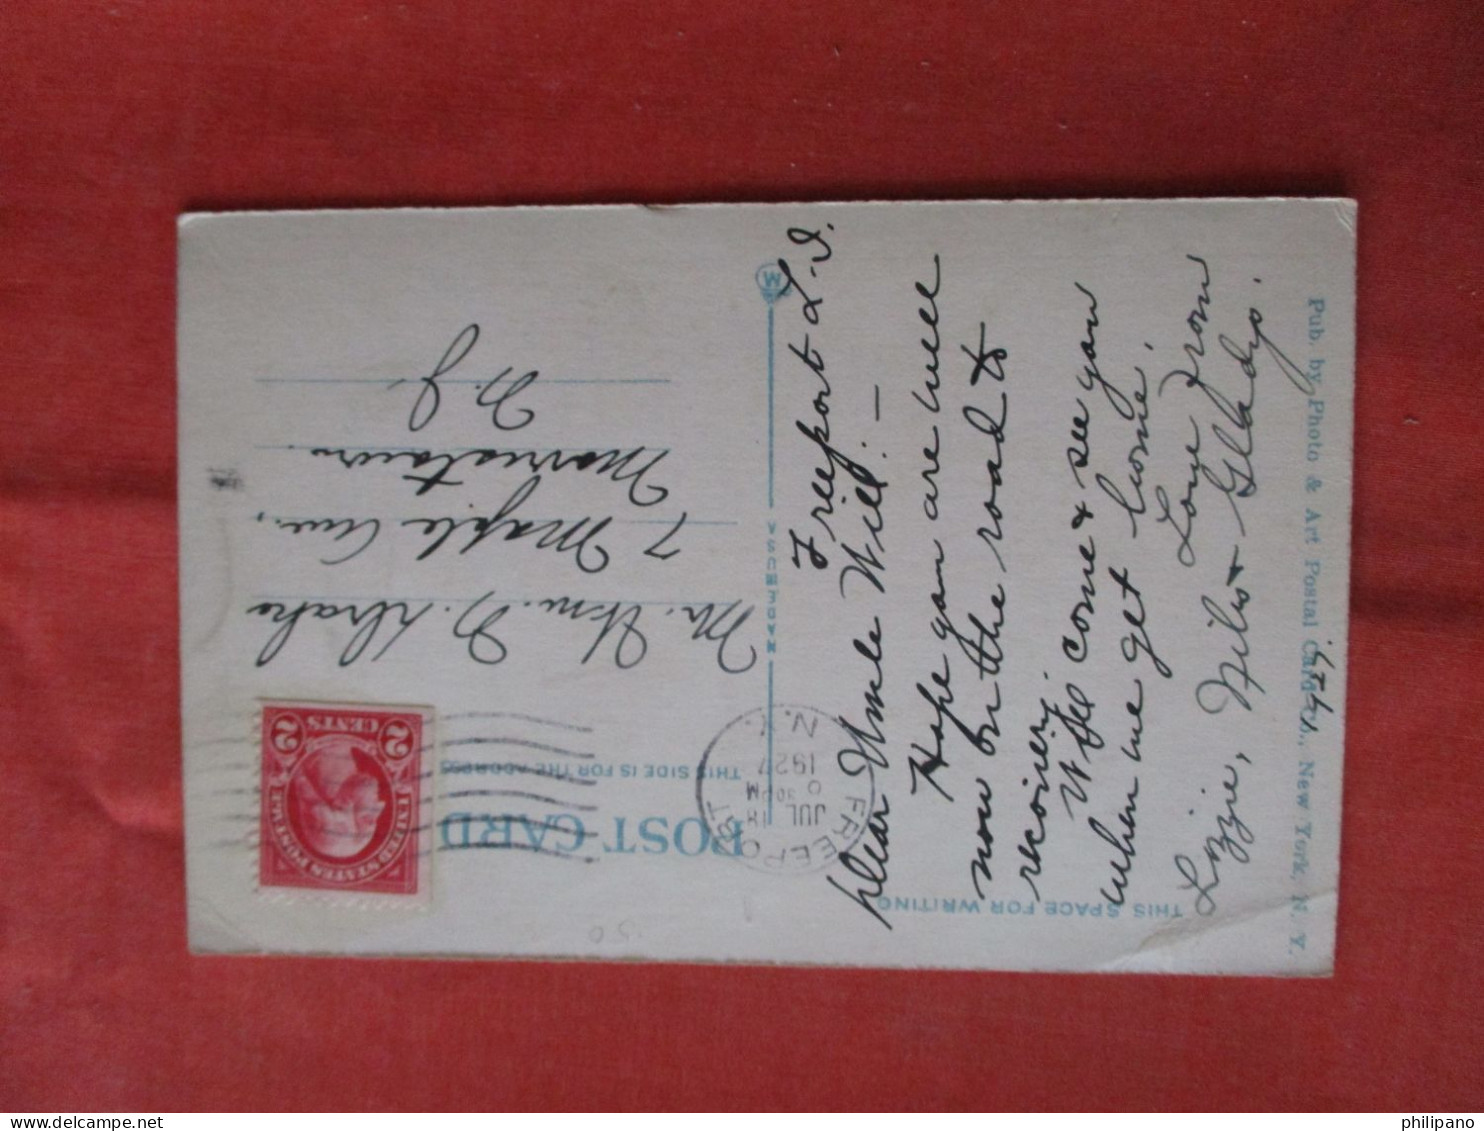 POST CARD
THIS SIDE IS FOR THE ADDRESS
THIS SPACE FOR WRITING
MADE IN U.S.A.
UNITED STATES POSTAGE
2 CENTS 2
FREEPORT
JUL 18
6 30 PM
1927
N.Y.
Mr. Wm. D. Drake
7 Maple Ave,
Morristown
N. J.
Freeport L. I.
Dear Uncle Will:—
Hope you are well
now or the road to
recovery.
Will come & see you
when we get home.
Love from
Lizzie, Wilis & Gladys.
Pub. by Photo & Art Postal Card Co., New York, N. Y.
philipano